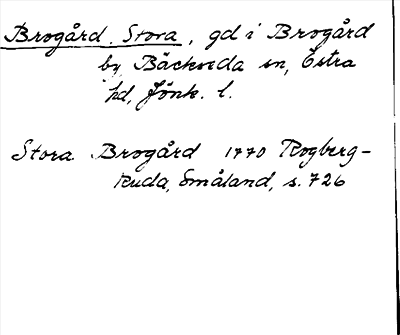 Brogård, Stora, gd i Brogård
by, Bäckseda sn, Östra
hd, Jönk. l.
Stora Brogård 1770 Rogberg-
Ruda, Småland, s. 726